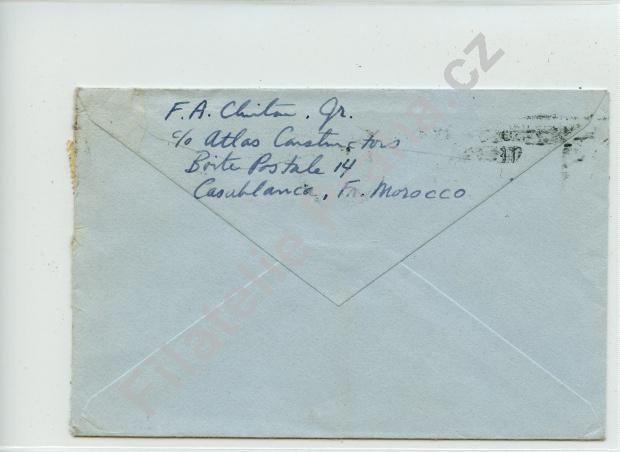 F. A. Clinton, Jr.
c/o Atlas Constructors
Boite Postale 14
Casablanca, Fr. Morocco
Filatelie .cz